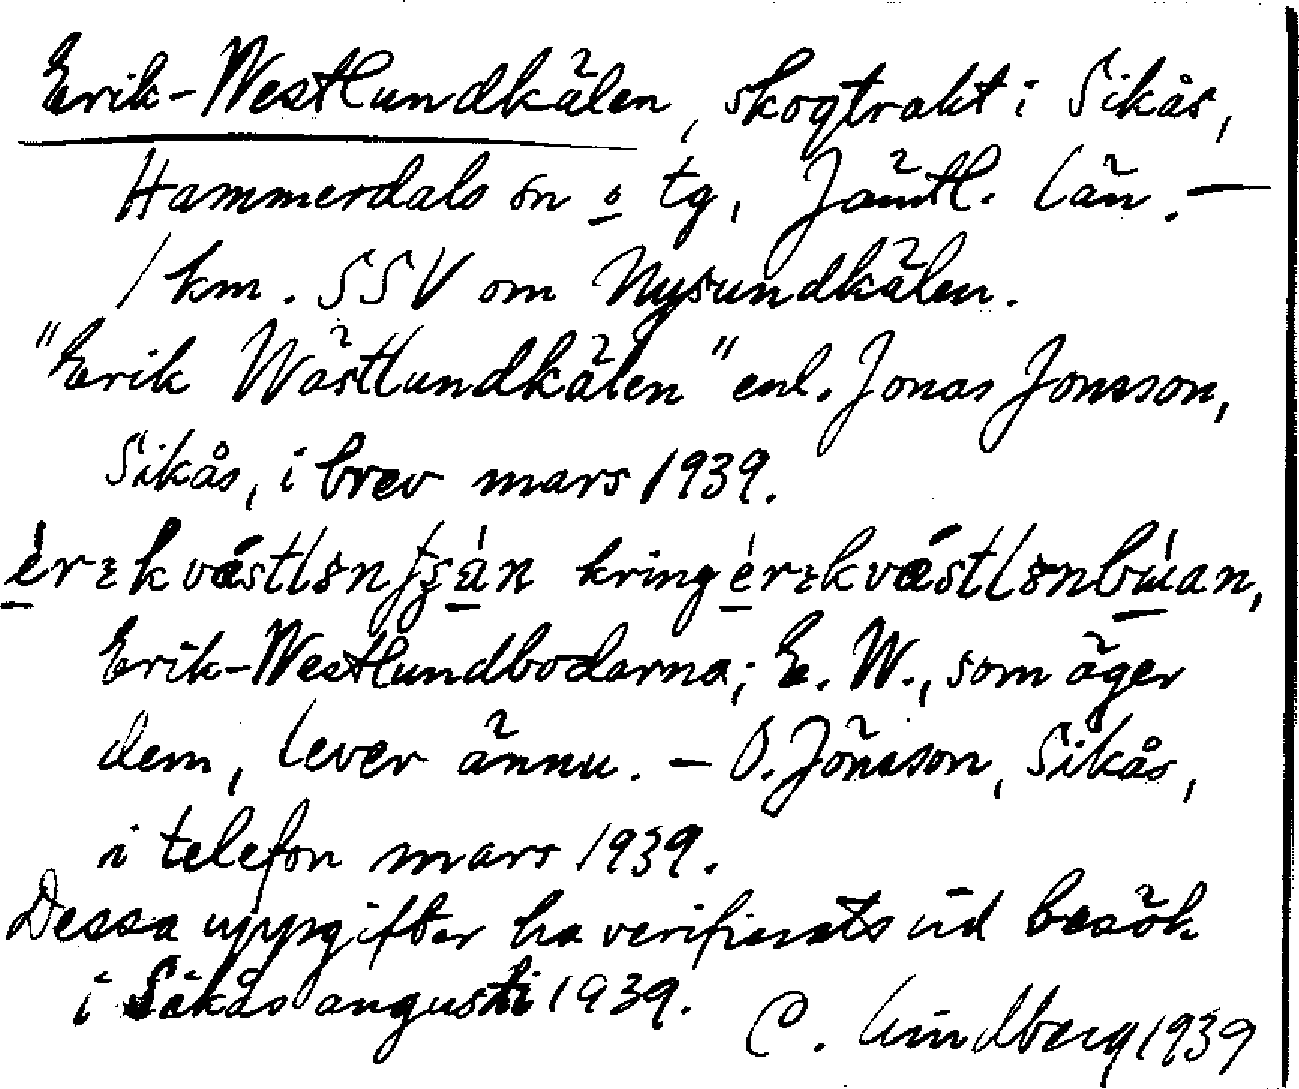 Erik-Westlundkälen, skogtrakt i Sikås,
Hammerdals sn o tg, Jämtl. län. —
1 km. SSV om Nysundkälen.
"Erik Wästlundkälen" enl. Jonas Jonsson,
Sikås, i brev mars 1939.
kring
Erik-Westlundbodarna; E. W., som äger
dem, lever ännu. — O. Jönsson, Sikås,
i telefon mars 1939.
Dessa uppgifter ha verifierats vid besök
i Sikås augusti 1939.
C. Lindberg 1939